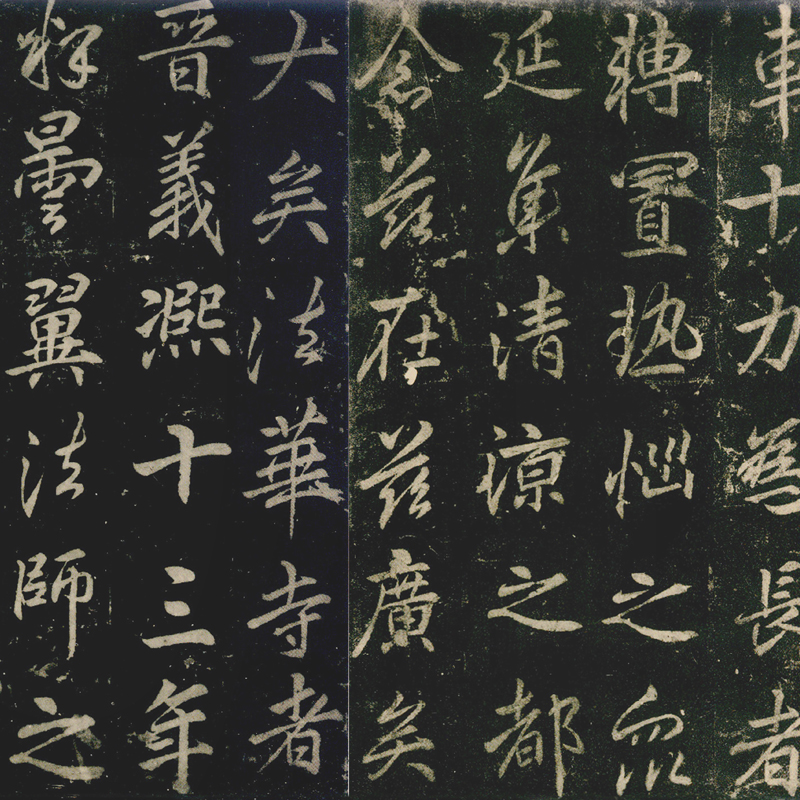 車十力為長者
轉置熱惱之眾
延集清涼之都
念茲在茲廣矣
大矣法華寺者
晉義熙十三年
釋曇翼法師之